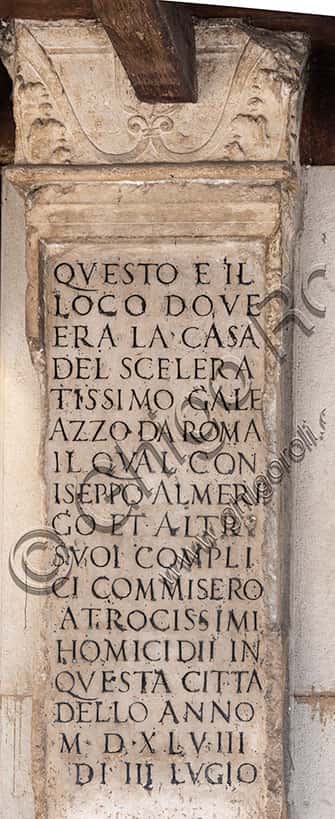 QVESTO E IL
LOCO DOVE
ERA LA CASA
DEL SCELERA
TISSIMO GALE
AZZO·DA ROMA
IL QVAL CON
ISEPPO ALMERI
GO ET ALTRI
SVOI COMPLI
CI COMMISERO
ATROCISSIMI
HOMICIDII IN
QVESTA CITTA
DELLO ANNO
M·D·XLVIII
DI III LVGIO
© Ghigo Roli
www.ghigoroli.com